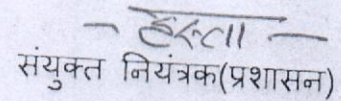 — हस्ता —
संयुक्त नियंत्रक(प्रशासन)